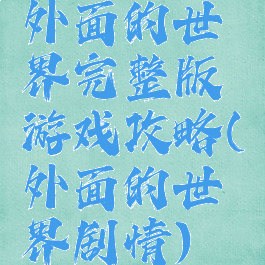 外面的世
界完整版
游戏攻略(
外面的世
界剧情)